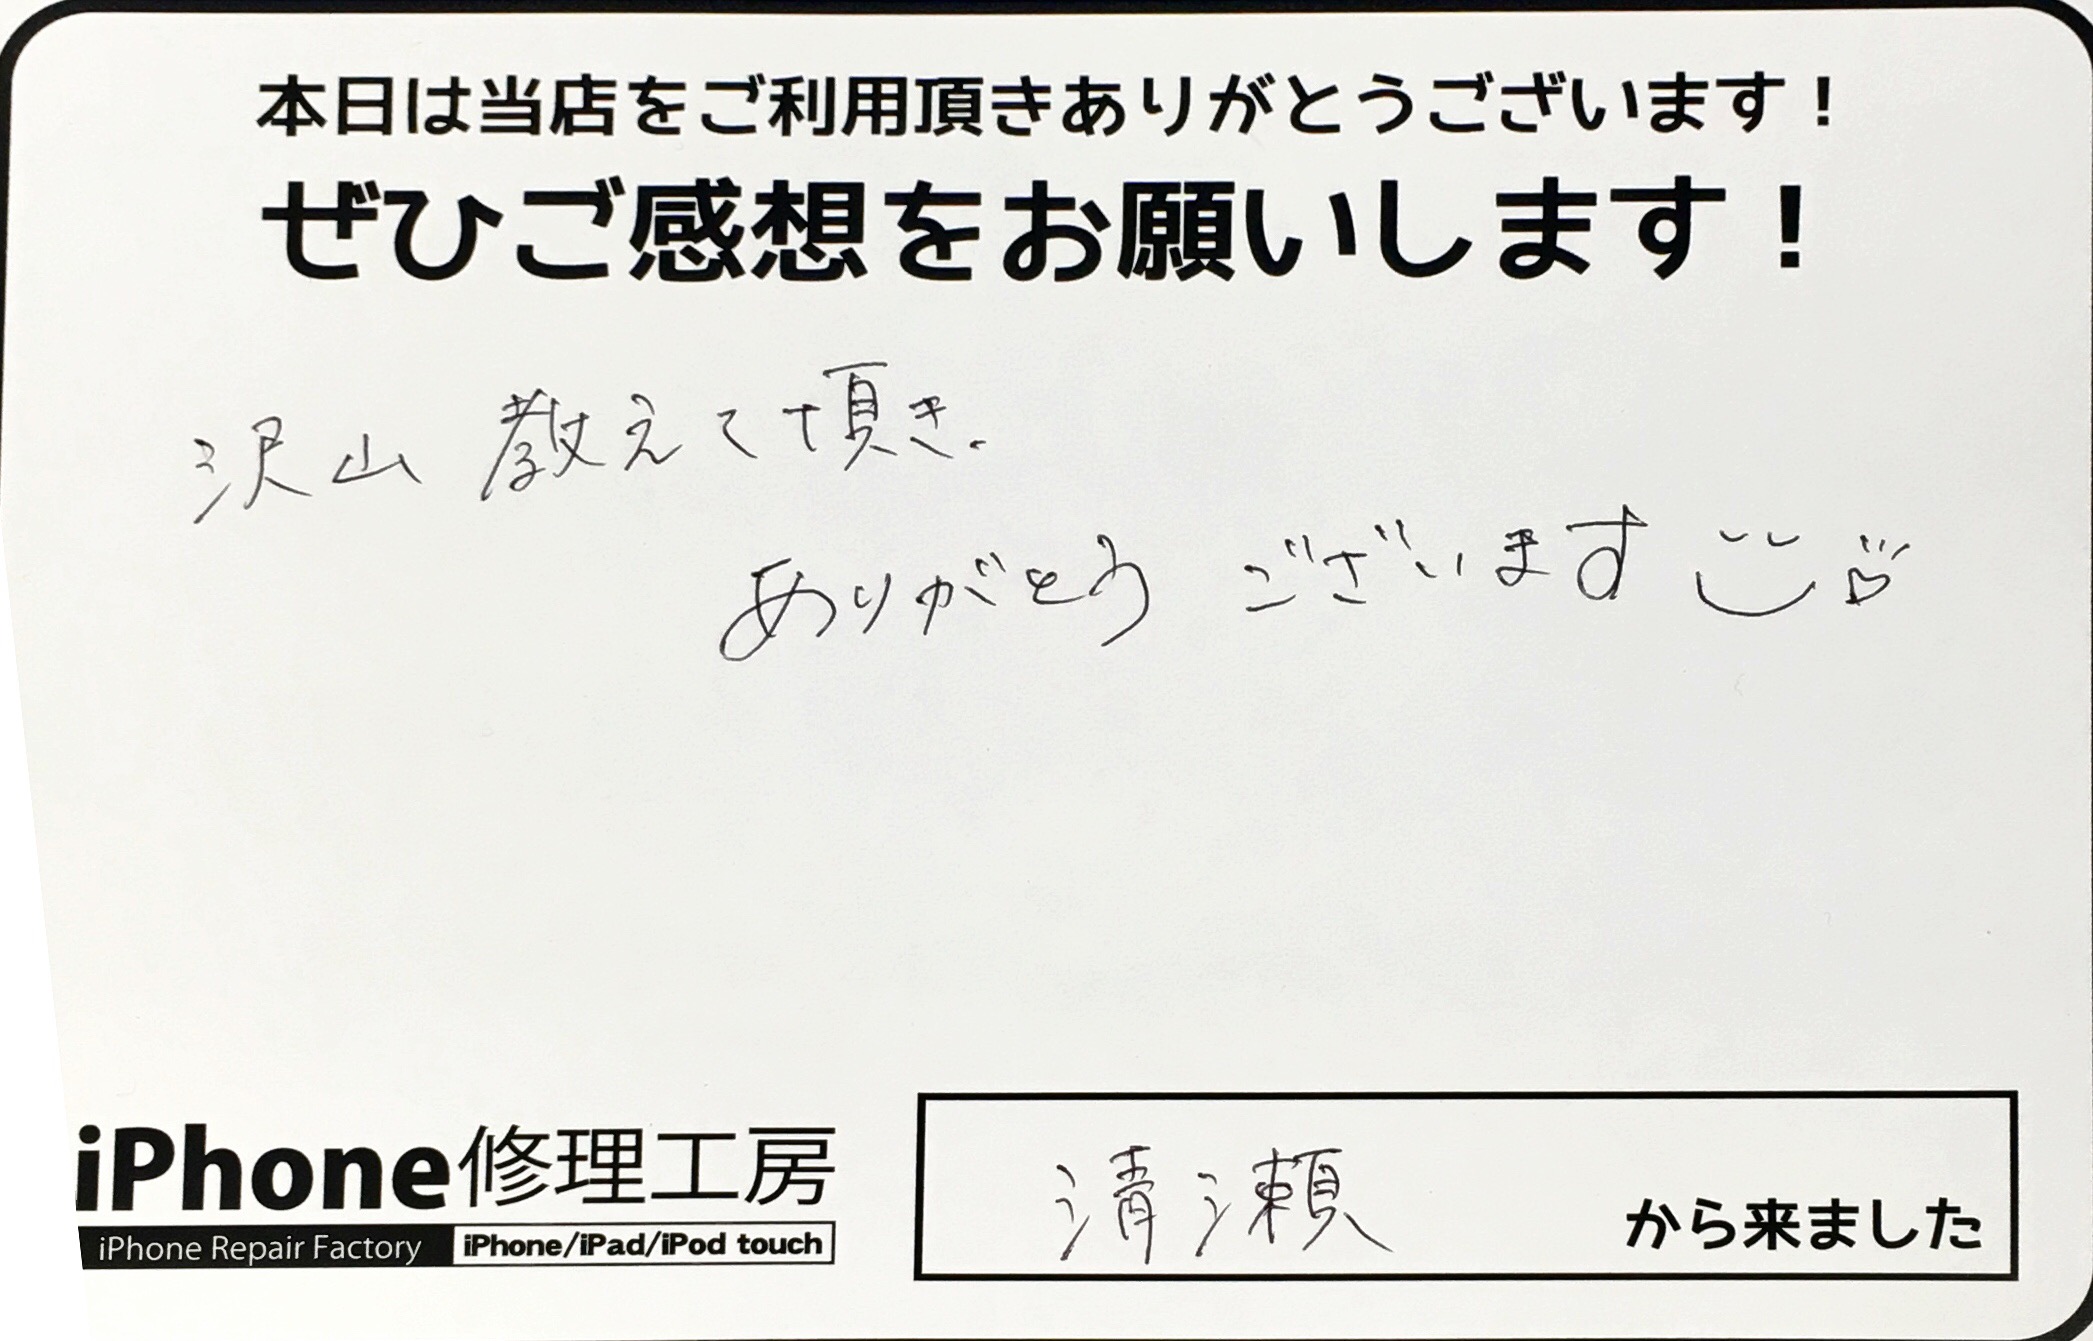 本日は当店をご利用頂きありがとうございます！
ぜひご感想をお願いします！
沢山 教えて頂き、
ありがとう ございます
iPhone修理工房
iPhone Repair Factory iPhone/iPad/iPod touch
清瀬 から来ました